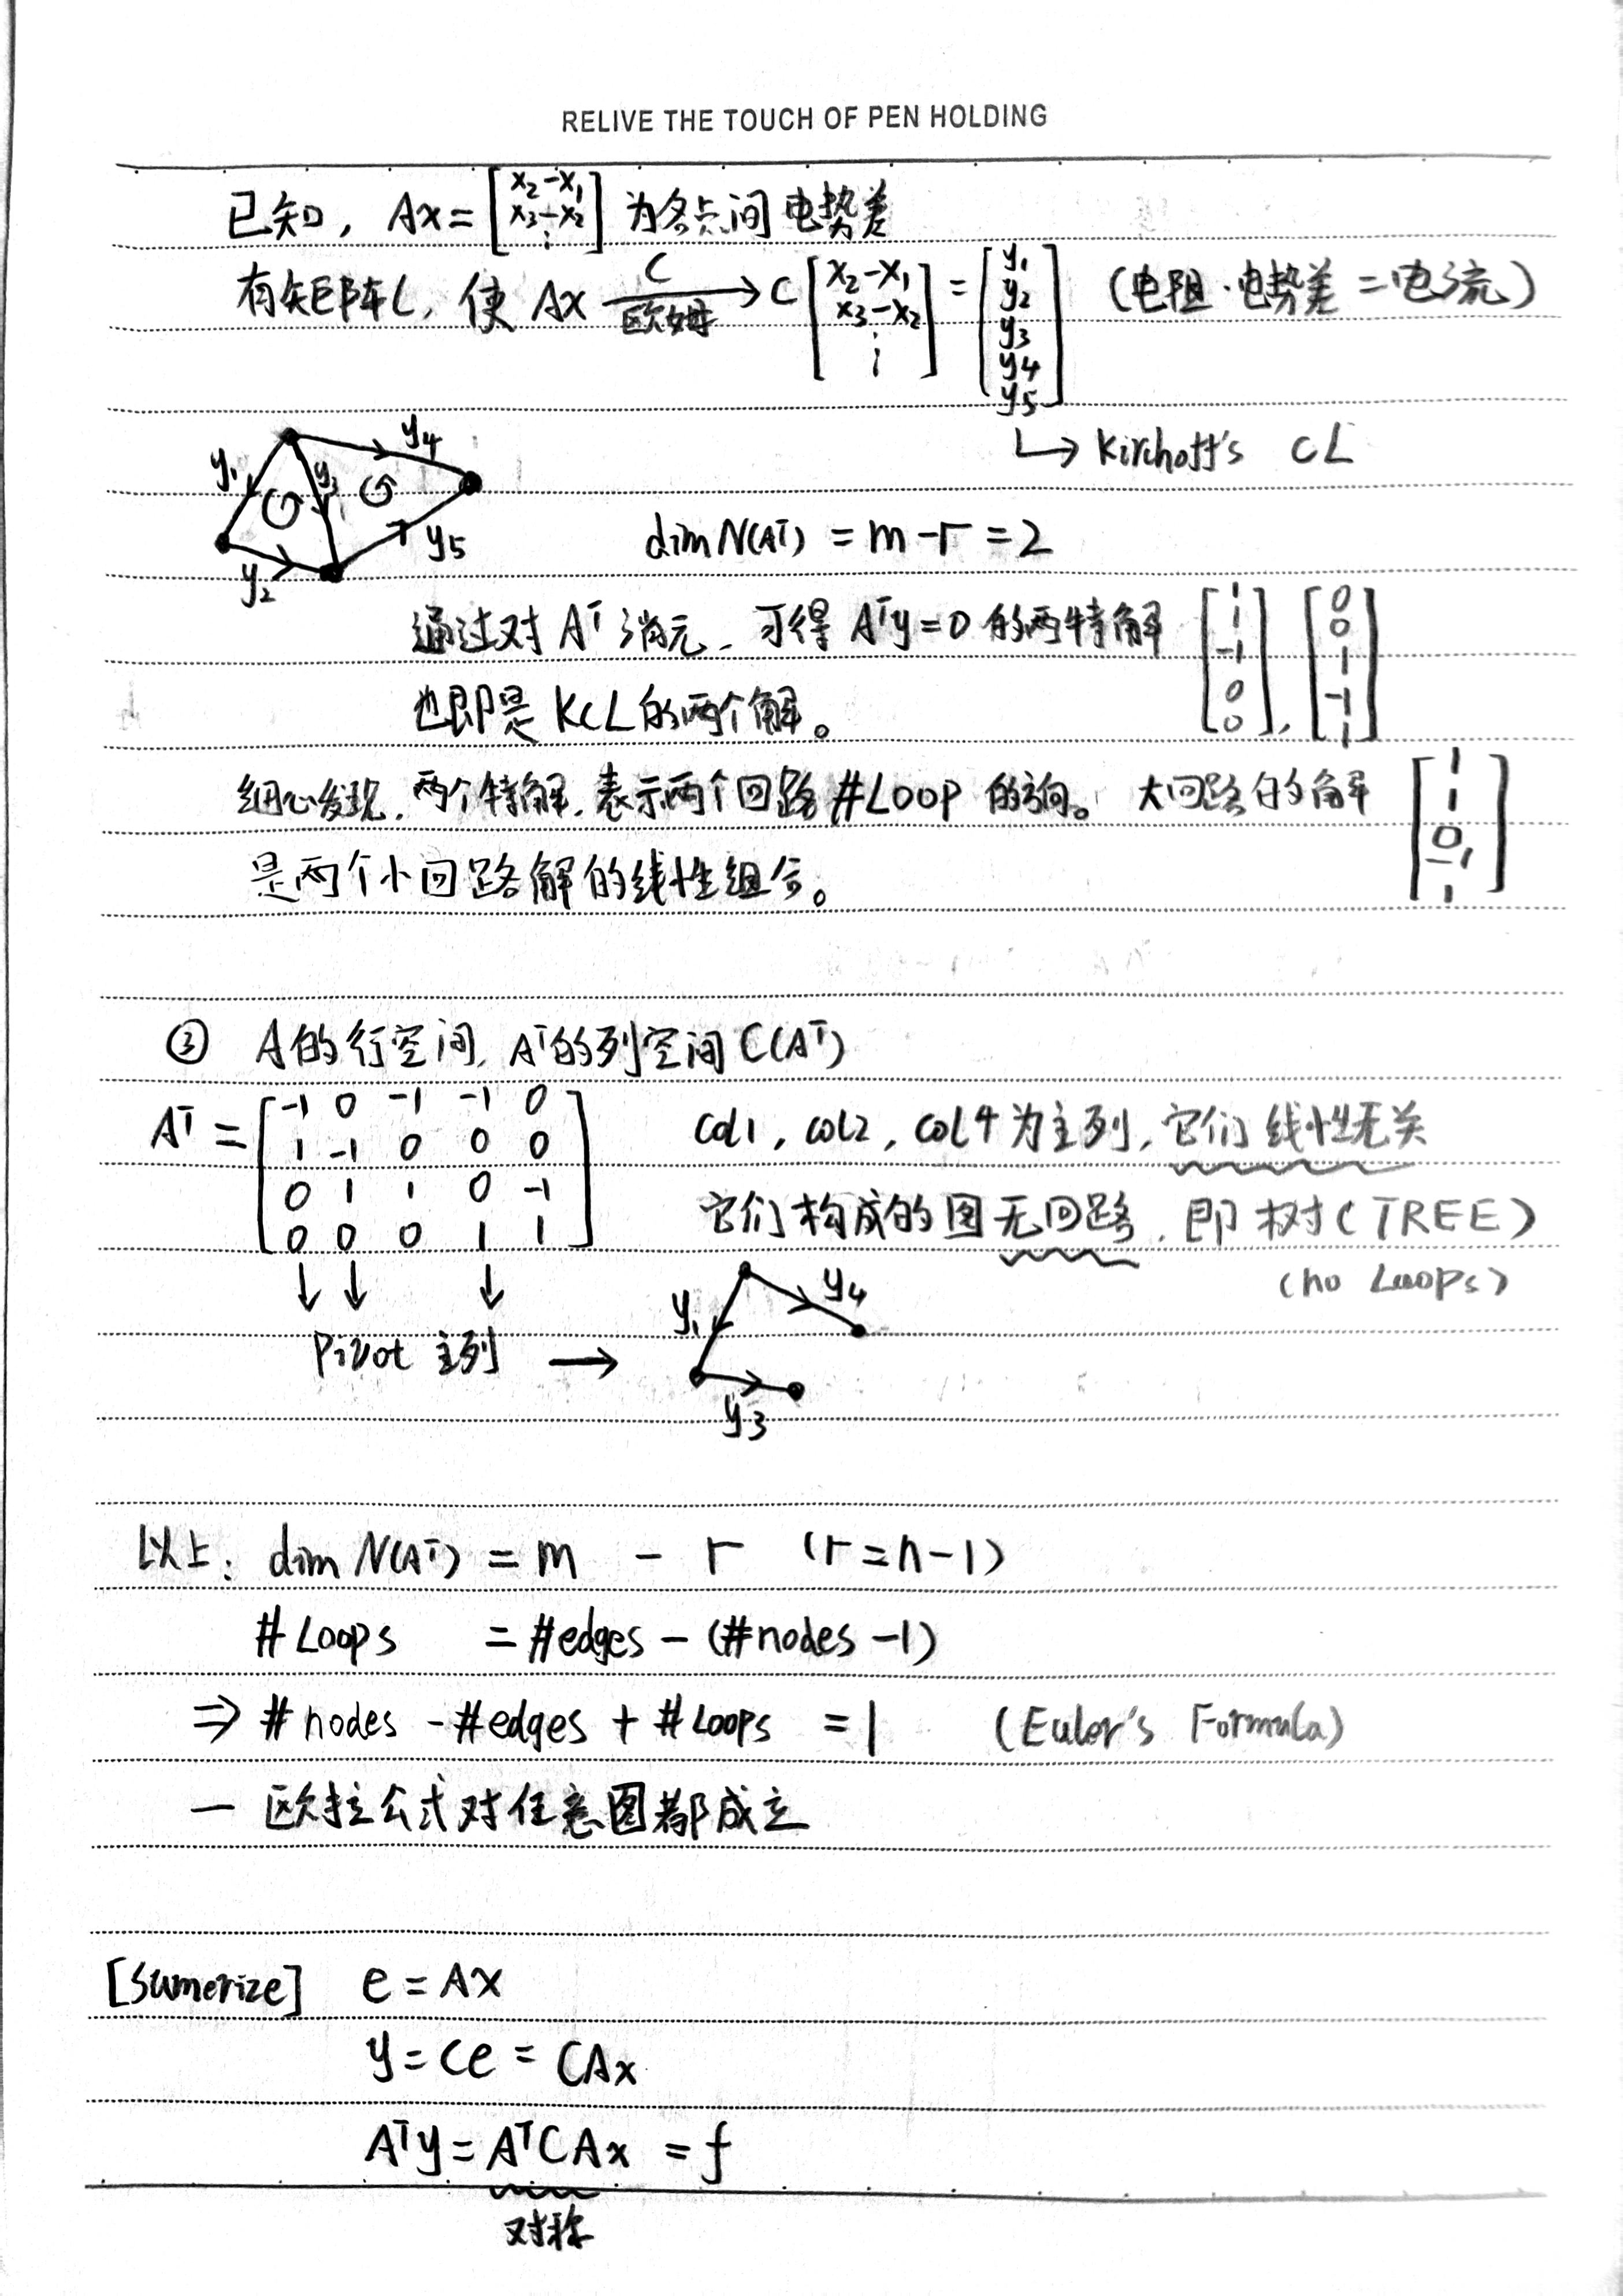 RELIVE THE TOUCH OF PEN HOLDING
已知, Ax = [x₂-x₁ x₃-x₂ ⋮] 为各点间电势差
有矩阵C, 使 Ax —C 欧姆→ C [x₂-x₁ x₃-x₂ ⋮] = [y₁ y₂ y₃ y₄ y₅] (电阻·电势差=电流)
↳ Kirchoff's CL
y₁ y₃ y₄ y₂ y₅
dim N(Aᵀ) = m-r = 2
通过对 Aᵀ 消元、可得 Aᵀy=0 的两特解 [1 1 -1 0 0], [0 0 1 -1 1]
也即是 KCL的两个解。
细心发现, 两个特解, 表示两个回路 #LOOP 的方向。 大回路的解 [1 1 0 -1 1]
是两个小回路解的线性组合。
③ A的行空间, Aᵀ的列空间 C(Aᵀ)
Aᵀ = [-1 0 -1 -1 0
1 -1 0 0 0
0 1 1 0 -1
0 0 0 1 1]
col1, col2, col4 为主列, 它们线性无关
它们构成的图无回路, 即 树(TREE)
(no Loops)
↓ ↓ ↓
Pivot 主列 →
y₁ y₄ y₃
以上: dim N(Aᵀ) = m - r (r=n-1)
# Loops = #edges - (#nodes -1)
⇒ # nodes - #edges + # Loops = 1 (Euler's Formula)
— 欧拉公式对任意图都成立
[Sumerize] e = Ax
y = Ce = CAx
Aᵀy = AᵀCAx = f
对称